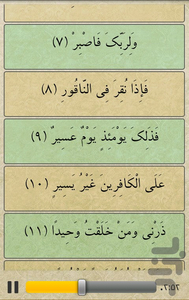 وَلِرَبِّکَ فَاصْبِرْ ﴿۷﴾
فَإِذَا نُقِرَ فِی النَّاقُورِ ﴿۸﴾
فَذَلِکَ يَوْمَئِذٍ يَوْمٌ عَسِيرٌ ﴿۹﴾
عَلَى الْکَافِرِينَ غَيْرُ يَسِيرٍ ﴿۱۰﴾
ذَرْنِی وَمَنْ خَلَقْتُ وَحِيدًا ﴿۱۱﴾
۰۲:۵۲